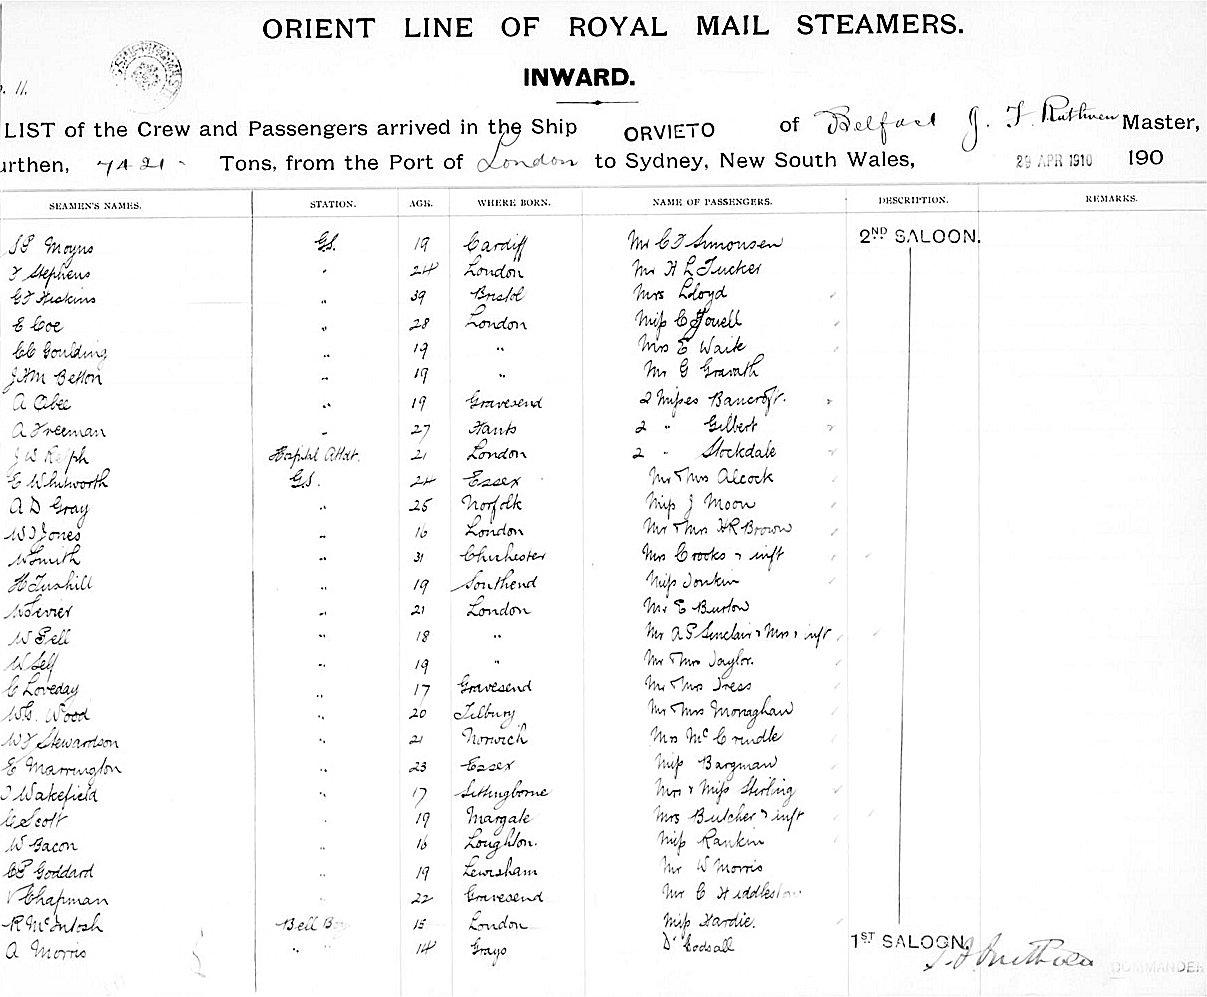 ORIENT LINE OF ROYAL MAIL STEAMERS.
INWARD.
LIST of the Crew and Passengers arrived in the Ship ORVIETO of Belfast J. F. Ruthven Master,
urthen, 7421 Tons, from the Port of London to Sydney, New South Wales, 29 APR 1910 190
SEAMEN'S NAMES. STATION. AGE. WHERE BORN. NAME OF PASSENGERS. DESCRIPTION. REMARKS.
Moyns G.S. 19 Cardiff Mr C F Simonsen 2ND SALOON.
F Stephens " 24 London Mr H L Tucker
G F Hoskins " 39 Bristol Mrs Lloyd
E Coe " 28 London Miss C Jouell
C C Goulding " 19 " Mrs E Waite
J H M Betton " 19 " Mr G
A Obee " 19 Gravesend 2 Misses Bancroft.
A Freeman " 27 Hants 2 " Gilbert
J W Relph Hospital Attdt. 21 London 2 " Stockdale
E Whitworth G.S. 24 Essex Mr & Mrs Alcock
A D Gray " 25 Norfolk Miss J Moon
W J Jones " 16 London Mr & Mrs H R Brown
W Smith " 31 Chichester Mrs Crooks & inft
H Tunhill " 19 Southend Miss Jonkin
W Sevier " 21 London Mr E Burton
W Pell " 18 " Mr A P Sinclair & Mrs & inft
W Self " 19 " Mr & Mrs Taylor.
C Loveday " 17 Gravesend Mr & Mrs Tress
W G. Wood " 20 Tilbury Mr & Mrs Monaghan
W F Stewardson " 21 Norwich Mrs McCrindle
E Marrington " 23 Essex Miss Bargman
J Wakefield " 17 Sittingborne Mrs & Miss Stirling
C Scott " 19 Margate Mrs Butcher & inft
W Bacon " 16 Loughton. Miss Rankin
C P Goddard " 19 Lewisham Mr W Morris
V Chapman " 22 Gravesend Mr C Hiddleston
R McIntosh Bell Boy 15 London Miss Hardie.
A Morris " " 14 Grays Dr Godsall 1ST SALOON.
J F Ruthven COMMANDER